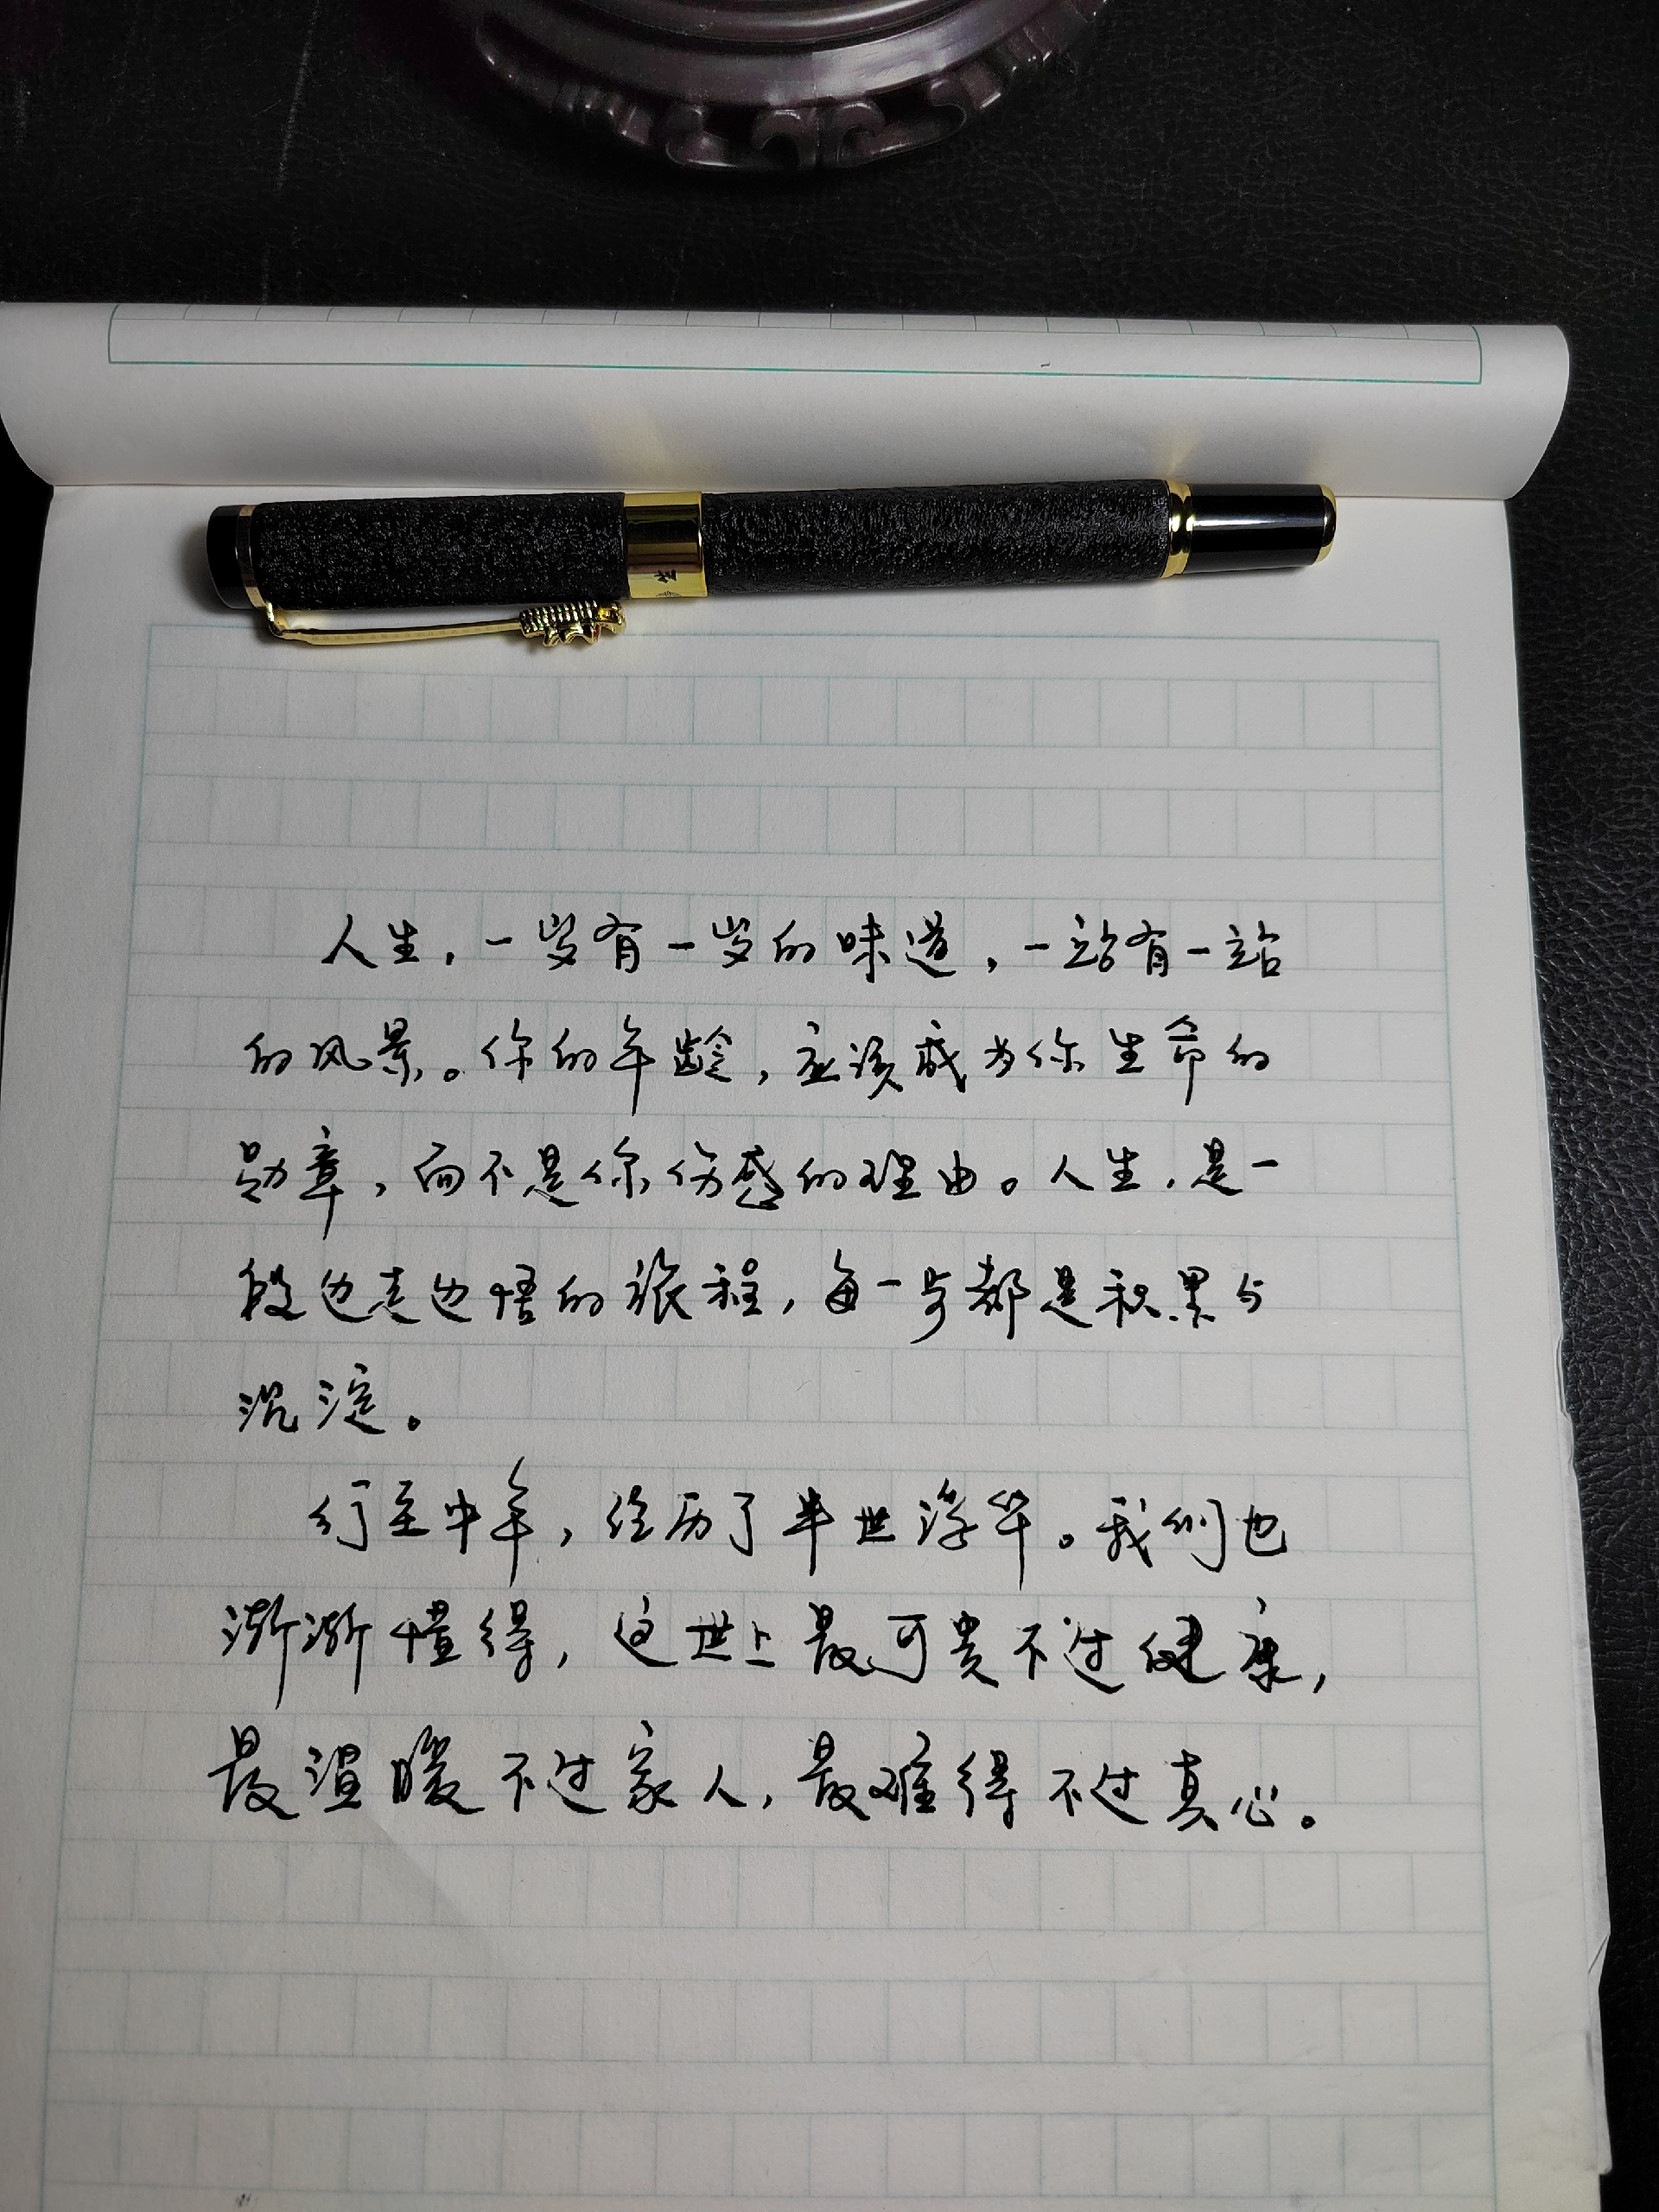 人生，一岁有一岁的味道，一站有一站
的风景。你的年龄，应该成为你生命的
勋章，而不是你伤感的理由。人生，是一
段边走边悟的旅程，每一步都是积累与
沉淀。
行至中年，经历了半世浮华。我们也
渐渐懂得，这世上最可贵不过健康，
最温暖不过家人，最难得不过真心。